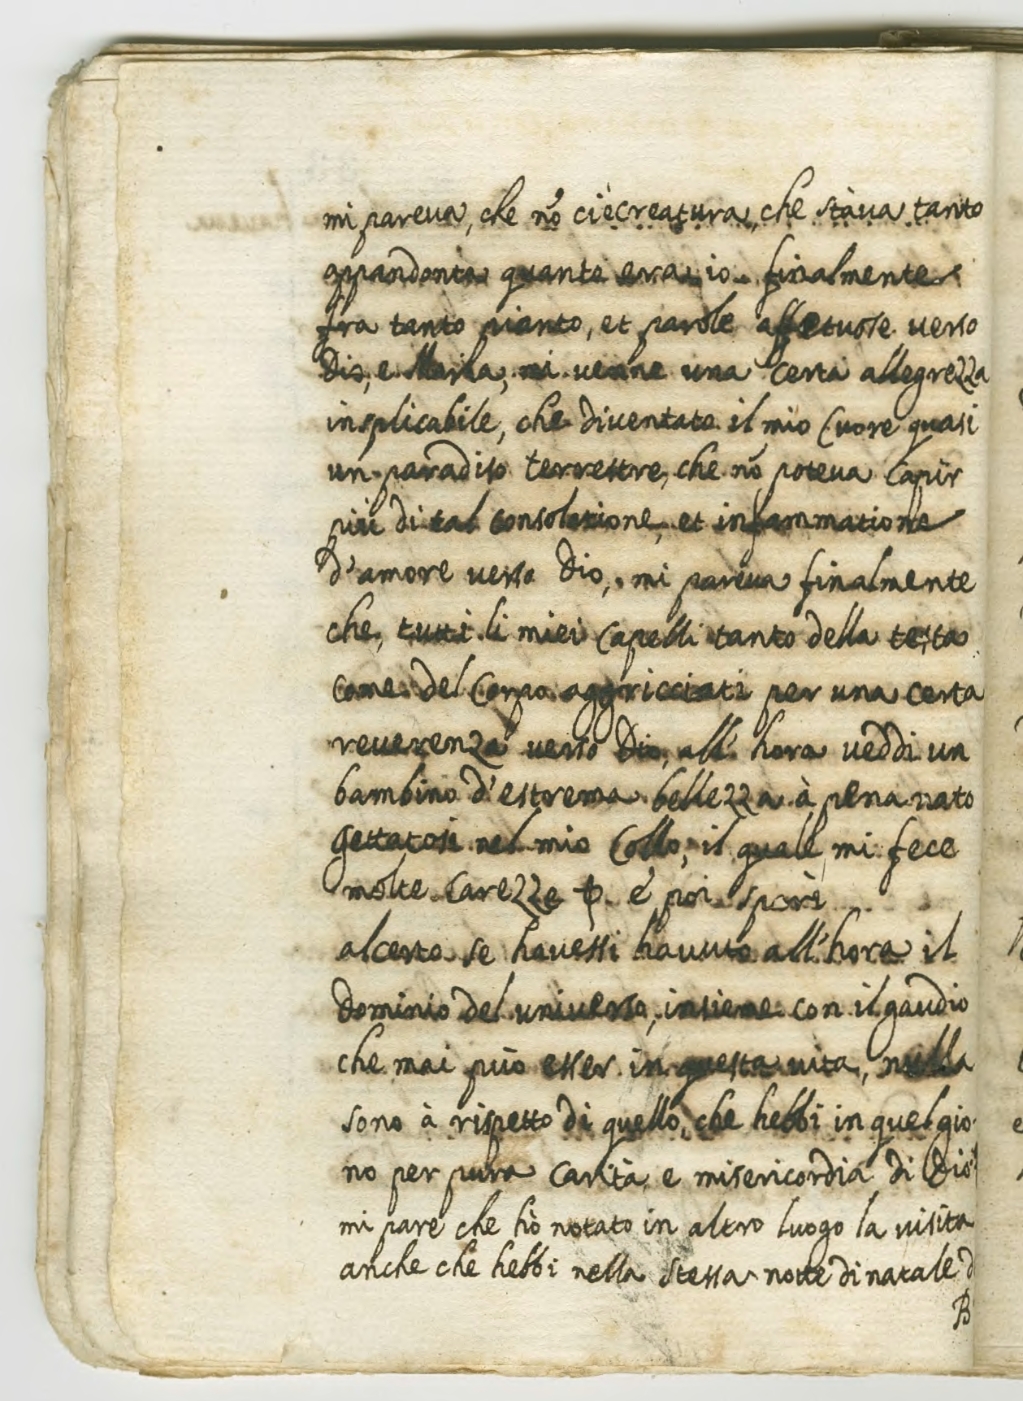 mi pareva, che nõ ci è creatura, che stàua tanto
quante era io. finalmente
fra tanto pianto, et parole affetuose verso
Dio, e Maria, mi venne una certa allegrezza
insplicabile, che diventato il mio Cuore quasi
un paradiso terrestre, che nõ poteva Capir
più di tal consolatione, et infammatione
d'amore verso Dio, mi pareva finalmente
che, tutti li miei Capelli tanto della testa
Come del Corpo aggricciati per una certa
reverenza verso Dio, all' hora veddi un
bambino d'estrema bellezza à pena nato
gettatosi nel mio Collo, il quale mi fece
molte Carezze e poi sparì
alcerto se havessi havuto all'hora il
Dominio del universo, insieme con il gaudio
che mai può esser in questa vita, nulla
sono à rispetto di quello, che hebbi in quel gio
no per pura Carità, e misericordia di Dio
mi pare che hò notato in altro luogo la visita
anche che hebbi nella stessa notte di natale d
B